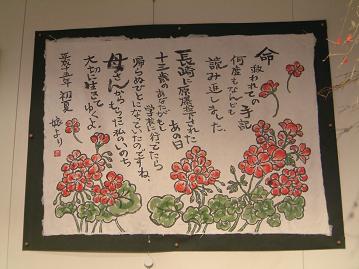 命
救われての手記
何度もなんども
読み返しました
あの日
長崎に原爆が落下された
十三才のあなたがもし
学校に行ってたら
帰らぬひとになっていたのですね
母さんからもらった私のいのち
大切に生きてゆくよ。
平成十五年 初夏
娘より